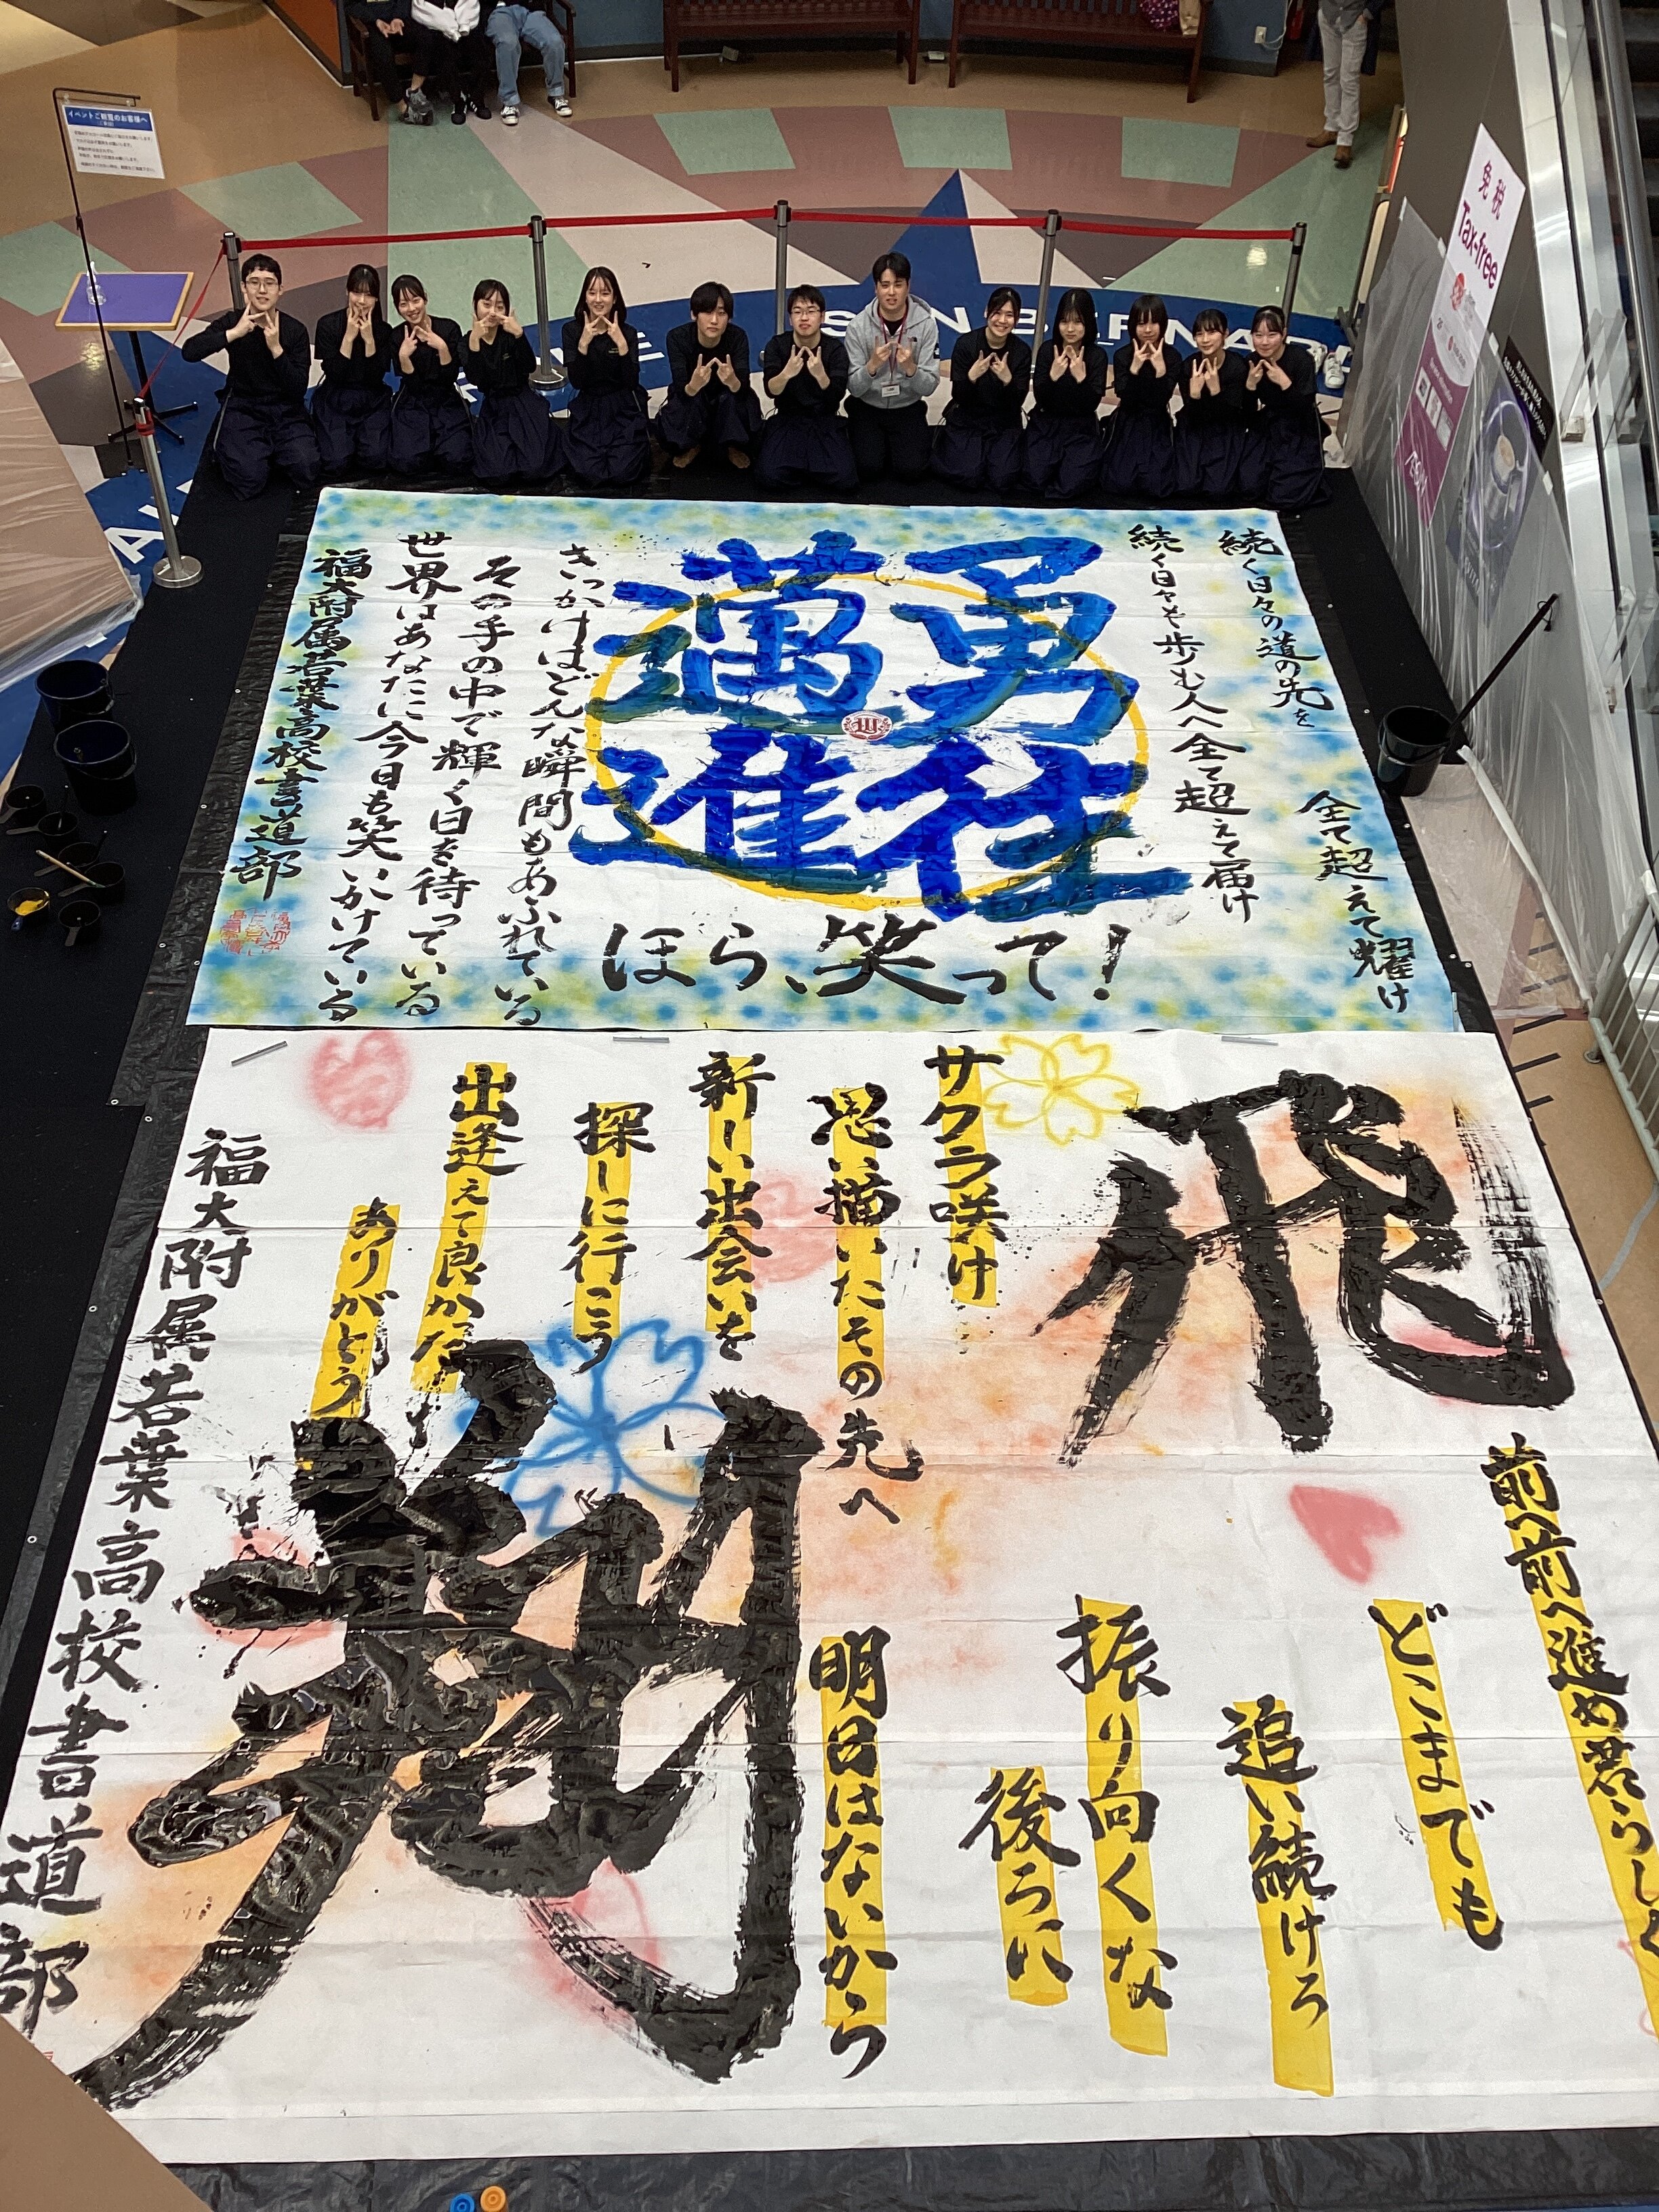 イベントご観覧のお客様へ
免税
Tax-free
SAN BERNARD
続く日々の道の先を
全て超えて耀け
続く日々も歩む人へ全て超えて届け
勇往邁進
ほら、笑って!
きっかけはどんな瞬間もあふれている
その手の中で輝く日を待っている
世界はあなたに今日も笑いかけている
福大附属若葉高校書道部
飛翔
前へ前へ進め君らしく
どこまでも
追い続けろ
振り向くな
後ろに
明日はないから
サクラ咲け
思い描いたその先へ
新しい出会いを
探しに行こう
出逢えて良かった
ありがとう
福大附属若葉高校書道部